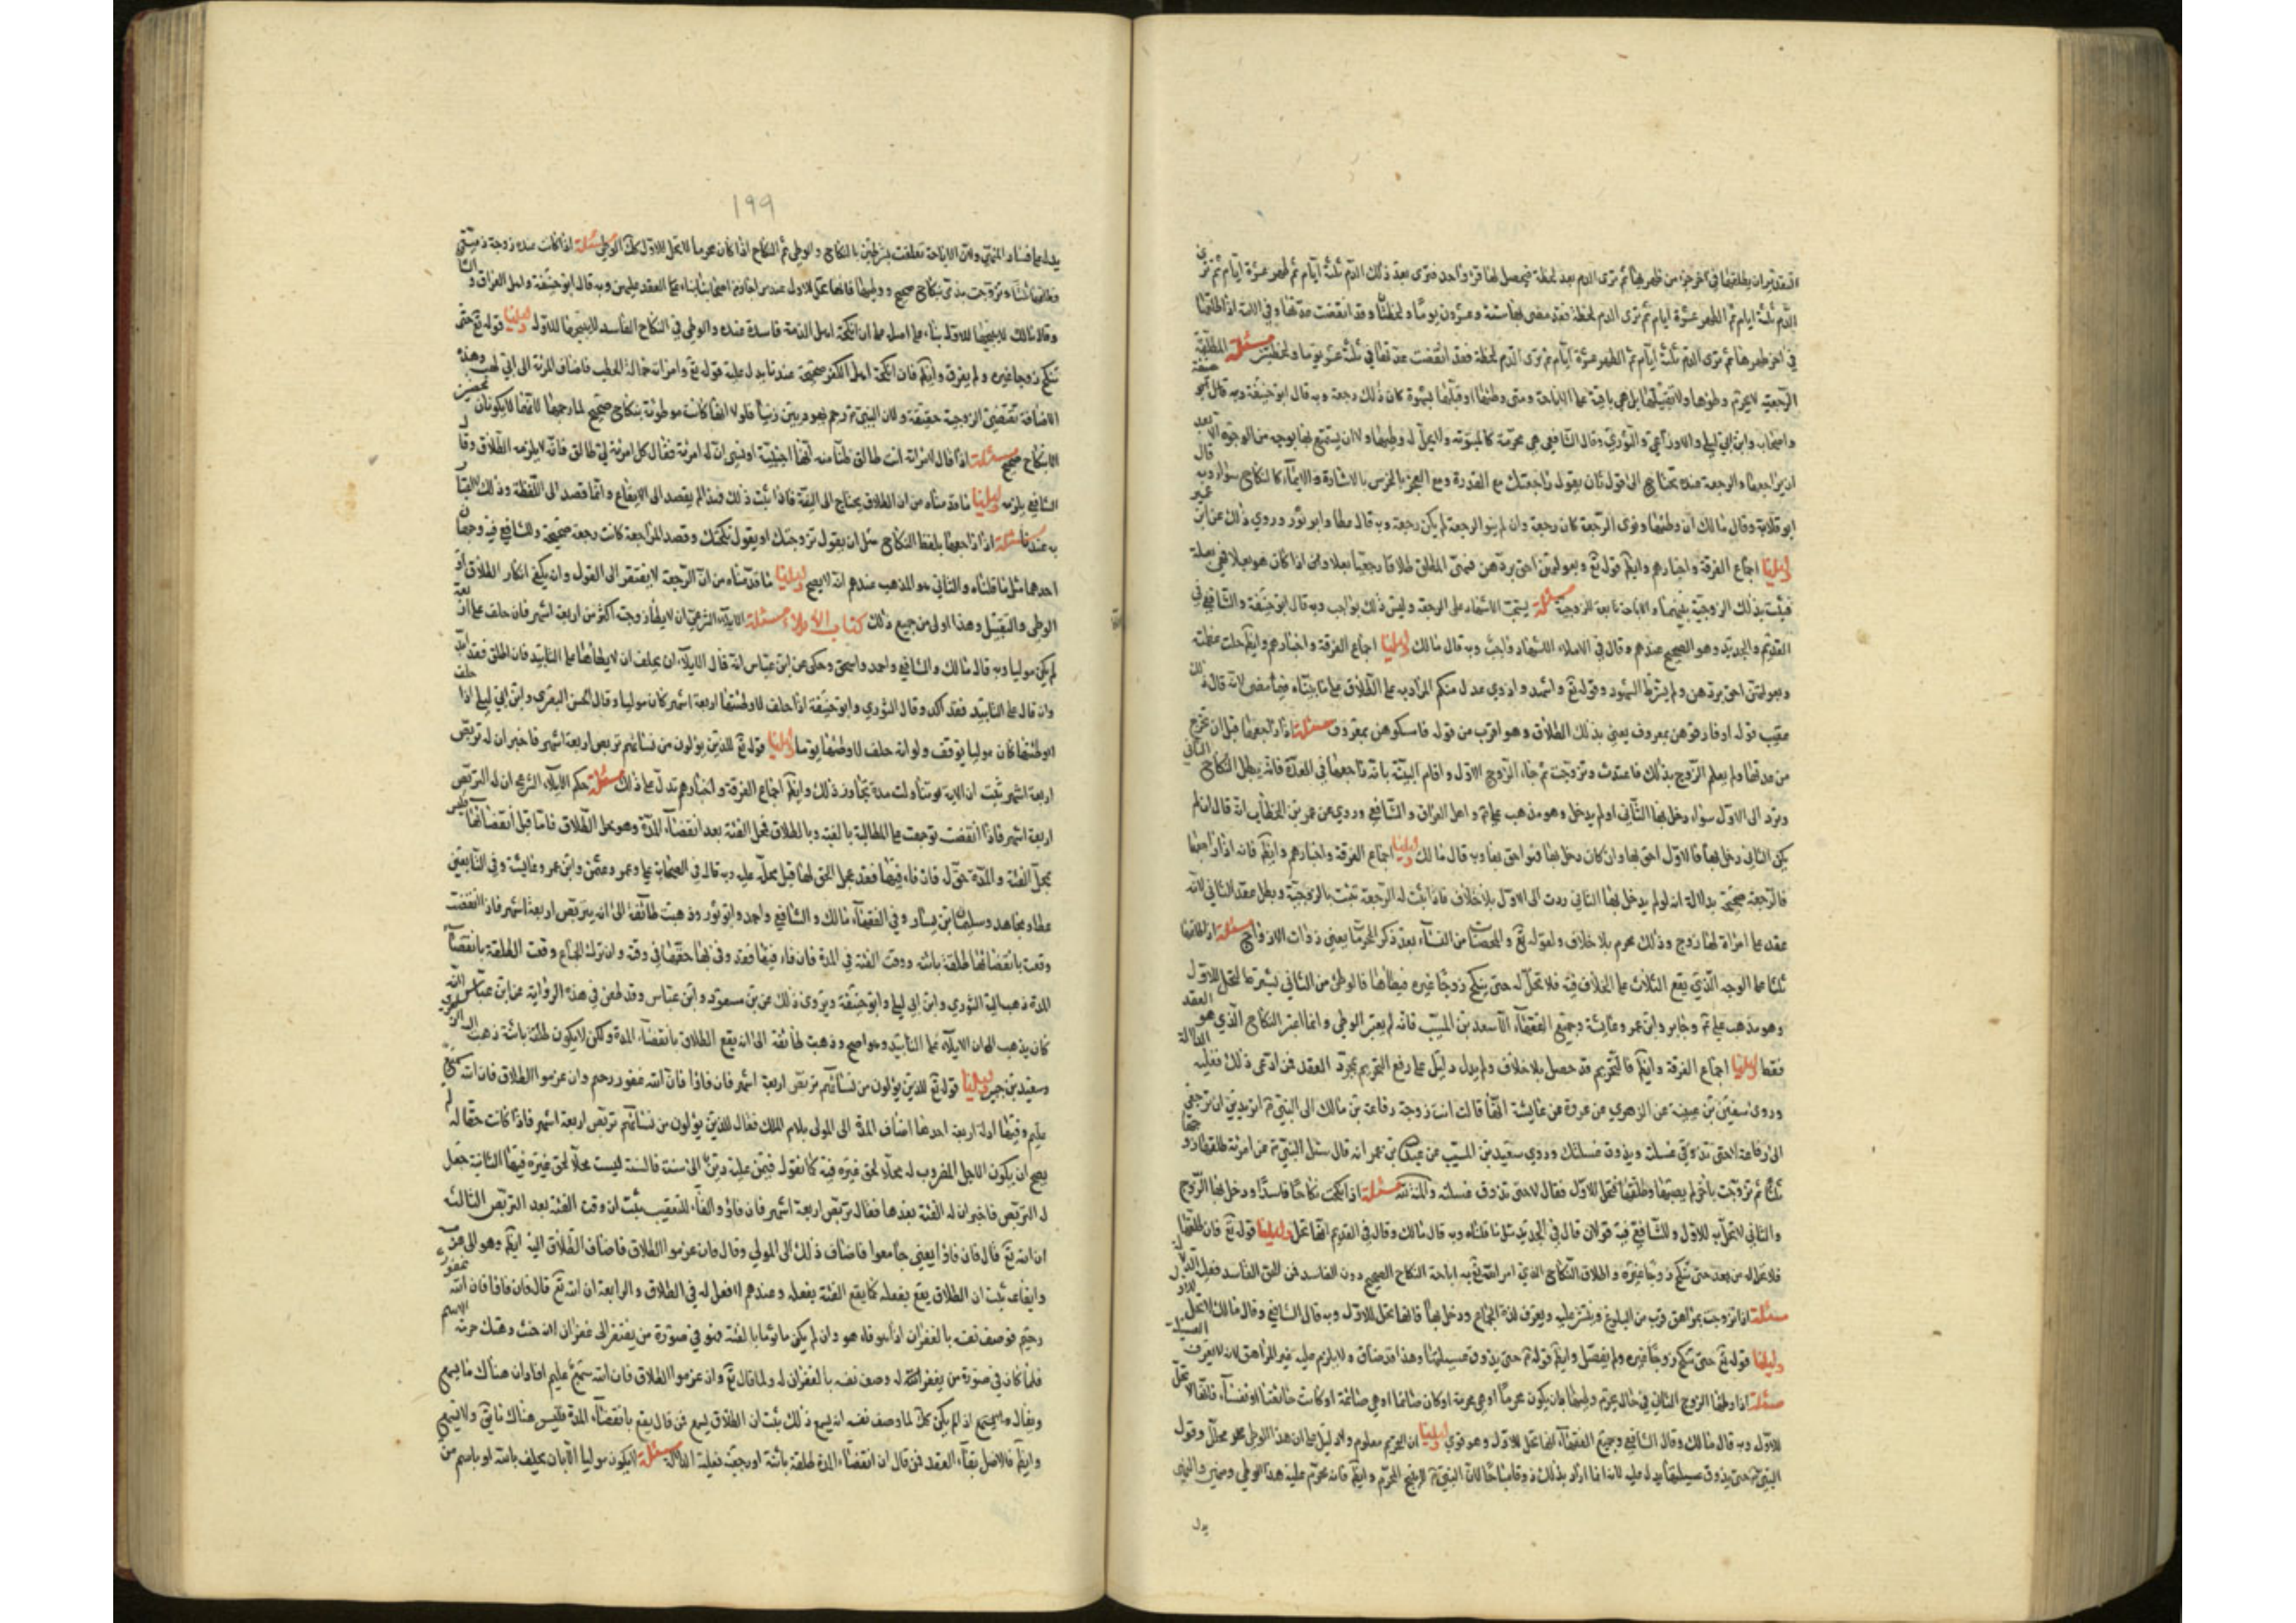 قد تقدم ان يطلقها في آخر جزء من طهرها ثم ترى الدم بعد لحظة فيحصل لها قرء واحد فترى بعد ذلك الدم ثلثة ايام ثم طهر عشرة ايام ثم ترى
الدم ثلثة ايام ثم الطهر عشرة ايام ثم ترى الدم لحظة فقد مضى لها ستة وعشرون يوما ولحظتان وقد انقضت عدتها وفي الامة اذا طلقها
في آخر طهرها ثم ترى الدم ثلثة ايام ثم الطهر عشرة ايام ثم ترى الدم لحظة فقد انقضت عدتها في ثلثة عشر يوما ولحظتين مسئلة المطلقة
الرجعية لا يحرم وطؤها ولا تقبيلها بل هي باقية على الاباحة ومتى وطئها او قبلها بشهوة كان ذلك رجعة وبه قال ابو حنيفة
واصحابه وابن ابي ليلى والاوزاعي والثوري وقال الشافعي هي محرمة كالمبتوتة ولا يحل له وطيها ولا ان يستمتع بها بوجه من الوجوه الا بعد
ان يراجعها والرجعة عنده تحتاج الى قول بان يقول راجعتك مع القدرة ومع العجز بالخرس بالاشارة والايماء كالنكاح سواء وبه قال
ابو قلابة وقال مالك ان وطئها ونوى الرجعة كان رجعة وان لم ينو الرجعة لم يكن رجعة وبه قال عطا وابو ثور وروي ذلك عن ابن عمر
دليلنا اجماع الفرقة واخبارهم وايضا قوله تع وبعولتهن احق بردهن فسمى المطلق طلاقا رجعيا بعلا ومن اذا كان هو بعلا فهي بعلة
فيثبت بذلك الزوجية بينهما والاباحة تابعة للزوجية مسئلة يستحب الاشهاد على الرجعة وليس ذلك بواجب وبه قال ابو حنيفة والشافعي في
القديم والجديد وهو الصحيح عندهم وقال في الاملاء الاشهاد واجب وبه قال مالك دليلنا اجماع الفرقة واخبارهم وايضا
وبعولتهن احق بردهن ولم يشترط الشهود وقوله تع واشهدوا ذوي عدل منكم المراد به على الطلاق على ما بيناه فيما مضى لانه قال ذلك
عقيب قوله او فارقوهن بمعروف يعني بذلك الطلاق وهو اقرب من قوله فامسكوهن بمعروف مسئلة اذا راجعها قبل ان تخرج
من عدتها ولم يعلم الزوج بذلك فاعتدت وتزوجت ثم جاء الزوج الاول واقام البينة بانه راجعها في العدة فانه يبطل النكاح الثاني
وترد الى الاول سواء دخل بها الثاني او لم يدخل وهو مذهب علي ع واهل العراق والشافعي وروي عن عمر بن الخطاب انه قال ان لم
يكن الثاني دخل بها فالاول احق بها وان كان دخل بها فهو احق بها وبه قال مالك دليلنا اجماع الفرقة واخبارهم وايضا فانه اذا راجعها
فالرجعة صحيحة بدلالة انه لو لم يدخل بها الثاني ردت الى الاول بلا خلاف فاذا ثبت له الرجعة ثبت بالزوجية وبطل عقد الثاني لانه
عقد على امراة لها زوج وذلك محرم بلا خلاف ولقوله تع والمحصنات من النساء بعد ذكر المحرمات يعني ذوات الازواج مسئلة اذا طلقها
ثلثا على الوجه الذي يقع الثلاث على الخلاف فيه فلا تحل له حتى ينكح زوجا غيره فيطأها فالوطئ من الثاني يشترط لتحل للاول
وهو مذهب علي ع وجابر وابن عمر وعايشة وجميع الفقهاء الا سعيد بن المسيب فانه لم يعتبر الوطي وانما اعتبر النكاح الذي هو العقد
فقط دليلنا اجماع الفرقة وايضا فالتحريم قد حصل بلا خلاف ولم يدل دليل على رفع التحريم بمجرد العقد فمن ادعى ذلك فعليه الدلالة
وروى سفين بن عيينة عن الزهري عن عروة عن عايشة انها قالت اتت زوجة رفاعة بن مالك الى النبي ص اتريدين ان ترجعي
الى رفاعة لا حتى تذوقي عسيلته ويذوق عسيلتك وروي سعيد بن المسيب عن عبدالله بن عمر انه قال سئل النبي ص عن امرئة طلقها زوجها
ثلثا ثم تزوجت بآخر لم يصبها وطلقها اتحل للاول فقال لا حتى تذوق عسيلته مسئلة اذا نكحت نكاحا فاسدا ودخل بها الزوج
والثاني لا تحل به للاول وللشافعي فيه قولان قال في الجديد مثل ما قلناه وبه قال مالك وقال في القديم انها تحل دليلنا قوله تع فان طلقها
فلا تحل له من بعد حتى تنكح زوجا غيره واطلاق النكاح الذي امر الله تع به اباحة النكاح الصحيح دون الفاسد فمن الحق الفاسد فعليه الدليل
مسئلة اذا تزوجت بمراهق قرب من البلوغ وينتشر عليه ويعرف لذة الجماع ودخل بها فانها تحل للاول وبه قال الشافعي وقال مالك لا تحل للاول
دليلنا قوله تع حتى تنكح زوجا غيره ولم يفصل وايضا قوله ع حتى يذوق عسيلتها وهذا قد ذاق ولا يلزم عليه غير المراهق لانه لا يعرف العسيلة
مسئلة اذا وطئها الزوج الثاني في حال يحرم وطيها بان يكون محرما او هي محرمة او كان صائما او هي صائمة او كانت حائضا او نفساء فانها لا تحل
للاول وبه قال مالك وقال الشافعي وجميع الفقهاء انها تحل للاول وهو قوي دليلنا ان التحريم معلوم ولا دليل على ان هذا الوطي محلل وقول
النبي ص حتى يذوق عسيلتها يدل عليه لانه انما اراد بذلك ذوقا مباحا لان النبي ص لا يبيح المحرم وايضا فانه محرم عليه هذا الوطي ومنهي والنهي
يدل
۱۹۹
يدل على فساد المنهي ولان الاباحة تعلقت بشرطين بالنكاح والوطي ثم النكاح اذا كان محرما لا تحل للاول كك الوطي مسئلة اذا كانت عنده زوجة ذمية
فطلقها ثلثا وتزوجت بذمي بنكاح صحيح ووطيها فانها تحل للاول عند من اجاز من اصحابنا العقد عليهن وبه قال ابو حنيفة واهل العراق والشافعي
وقال مالك لا يبيحها للاول بناء على اصله ان انكحة اهل الذمة فاسدة عنده والوطي في النكاح الفاسد لا يبيحها للاول دليلنا قوله تع حتى
تنكح زوجا غيره ولم يفرق وايضا فان انكحة اهل الكفر صحيحة عندنا يدل عليه قوله تع وامراته حمالة الحطب فاضاف المرئة الى ابي لهب وهذه
الاضافة تقتضي الزوجية حقيقة ولان النبي ص رجم يهوديين زنيا فلولا انها كانت موطوئة بنكاح صحيح لما رجمها لانهما لا يكونان محصنين
الا بنكاح صحيح مسئلة اذا قال لامراته انت طالق ظنا منه انها اجنبية او نسي ان له امرئة فقال كل امرئة لي طالق فانه لا يلزمه الطلاق وقال
الشافعي يلزمه دليلنا ما قدمناه من ان الطلاق يحتاج الى النية فاذا ثبت ذلك فهذا لم يقصد الى الايقاع وانما قصد الى اللفظة وذلك لا اعتبار
به عندنا مسئلة اذا راجعها بلفظ النكاح مثل ان يقول تزوجتك او يقول نكحتك وقصد المراجعة كانت رجعة صحيحة وللشافعي فيه وجهان
احدهما مثل ما قلناه والثاني هو المذهب عندهم انه لا يصح دليلنا ما قدمناه من ان الرجعة لا يفتقر الى القول وانه يكفي انكار الطلاق او
الوطي والتقبيل وهذا اولى من جميع ذلك كتاب الايلاء مسئلة الايلاء الشرعي ان لا يطأ زوجته اكثر من اربعة اشهر فان حلف على اربعة
لم يكن موليا وبه قال مالك والشافعي واحمد واسحق وحكي عن ابن عباس انه قال الايلاء ان يحلف ان لا يطأها على التابيد فان اطلق فقد ابد
وان قال على التابيد فقد اكد وقال الثوري وابو حنيفة اذا حلف لا وطئتها اربعة اشهر كان موليا وقال الحسن البصري وابن ابي ليلى اذا حلف
لا وطئتها كان موليا يوقف ولو انه حلف لا وطئها يوما دليلنا قوله تع للذين يؤلون من نسائهم تربص اربعة اشهر فاخبر ان له تربص
اربعة اشهر ثبت ان الاية تناولت مدة تجاوز ذلك وايضا اجماع الفرقة واخبارهم تدل على ذلك مسئلة حكم الايلاء الشرعي ان له التربص
اربعة اشهر فاذا انقضت توجهت عليه المطالبة بالفئة او بالطلاق فمحل الفئة بعد انقضاء المدة وهو محل الطلاق فاما قبل انقضائها فليس
بمحل الفئة والمدة حق له فان فاء فيها فقد عجل الحق لها قبل محله عليه وبه قال في الصحابة علي ع وعمر وعثمن وابن عمر وعايشة وفي التابعين
عطا ومجاهد وسليمان بن يسار وفي الفقهاء مالك والشافعي واحمد وابو ثور وذهبت طائفة الى انه يتربص اربعة اشهر فاذا انقضت
وقعت بانقضائها طلقة بائنة ووقت الفئة في المدة فان فاء فيها فقد وفى لها حقها في وقته وان ترك الجماع وقعت الطلقة بانقضاء
المدة ذهب اليه الثوري وابن ابي ليلى وابو حنيفة ويروى ذلك عن ابن مسعود وابن عباس وقد طعن في هذه الرواية عن ابن عباس لانه
كان يذهب الى ان الايلاء على التابيد وهو اصح وذهبت طائفة الى انه يقع الطلاق بانقضاء المدة ولكن لا يكون طلقة بائنة ذهب اليه الزهري
وسعيد بن جبير دليلنا قوله تع للذين يؤلون من نسائهم تربص اربعة اشهر فان فاؤا فان الله غفور رحيم وان عزموا الطلاق فان الله سميع
عليم وفيها ادلة اربعة احدها اضاف المدة الى المولي بلام الملك فقال للذين يؤلون من نسائهم تربص اربعة اشهر فاذا كانت حقا له لم
يصح ان يكون الاجل المضروب له محلا لحق غيره فيه كما نقول فيمن عليه دين الى سنة فالسنة ليست محلا لحق غيره فيها الثانية جعل
له التربص فاخبر ان له الفئة بعدها فقال تربص اربعة اشهر فان فاؤا والفاء للتعقيب ثبت ان وقت الفئة بعد التربص الثالثة
ان الله تع قال فان فاؤا يعني جامعوا فاضاف ذلك الى المولي وقال وان عزموا الطلاق فاضاف الطلاق اليه ايضا
وايقاعه ثبت ان الطلاق يقع بفعله كما يقع الفئة بفعله وعندهم لا فعل له في الطلاق والرابعة ان الله تع قال فان فاؤا فان الله غفور
رحيم فوصف نفسه بالغفران اذا هو فاء وان لم يكن مأثوما بالفئة فهو في صورة من يفتقر الى غفران لانه حنث وهتك حرمة الاسم
فلما كان في صورة من يغفر له وصف نفسه بالغفران له ولما قال تع وان عزموا الطلاق فان الله سميع عليم افاد ان هناك ما يسمع
ويقال ولو لم يكن كك لما وصف نفسه انه يسمع ذلك ثبت ان الطلاق يسمع فمن قال يقع بانقضاء المدة فليس هناك ما
وايضا فالاصل بقاء العقد فمن قال ان انقضاء المدة طلقة بائنة او رجعية فعليه الدلالة مسئلة لا يكون موليا الا بان يحلف بالله او باسم من